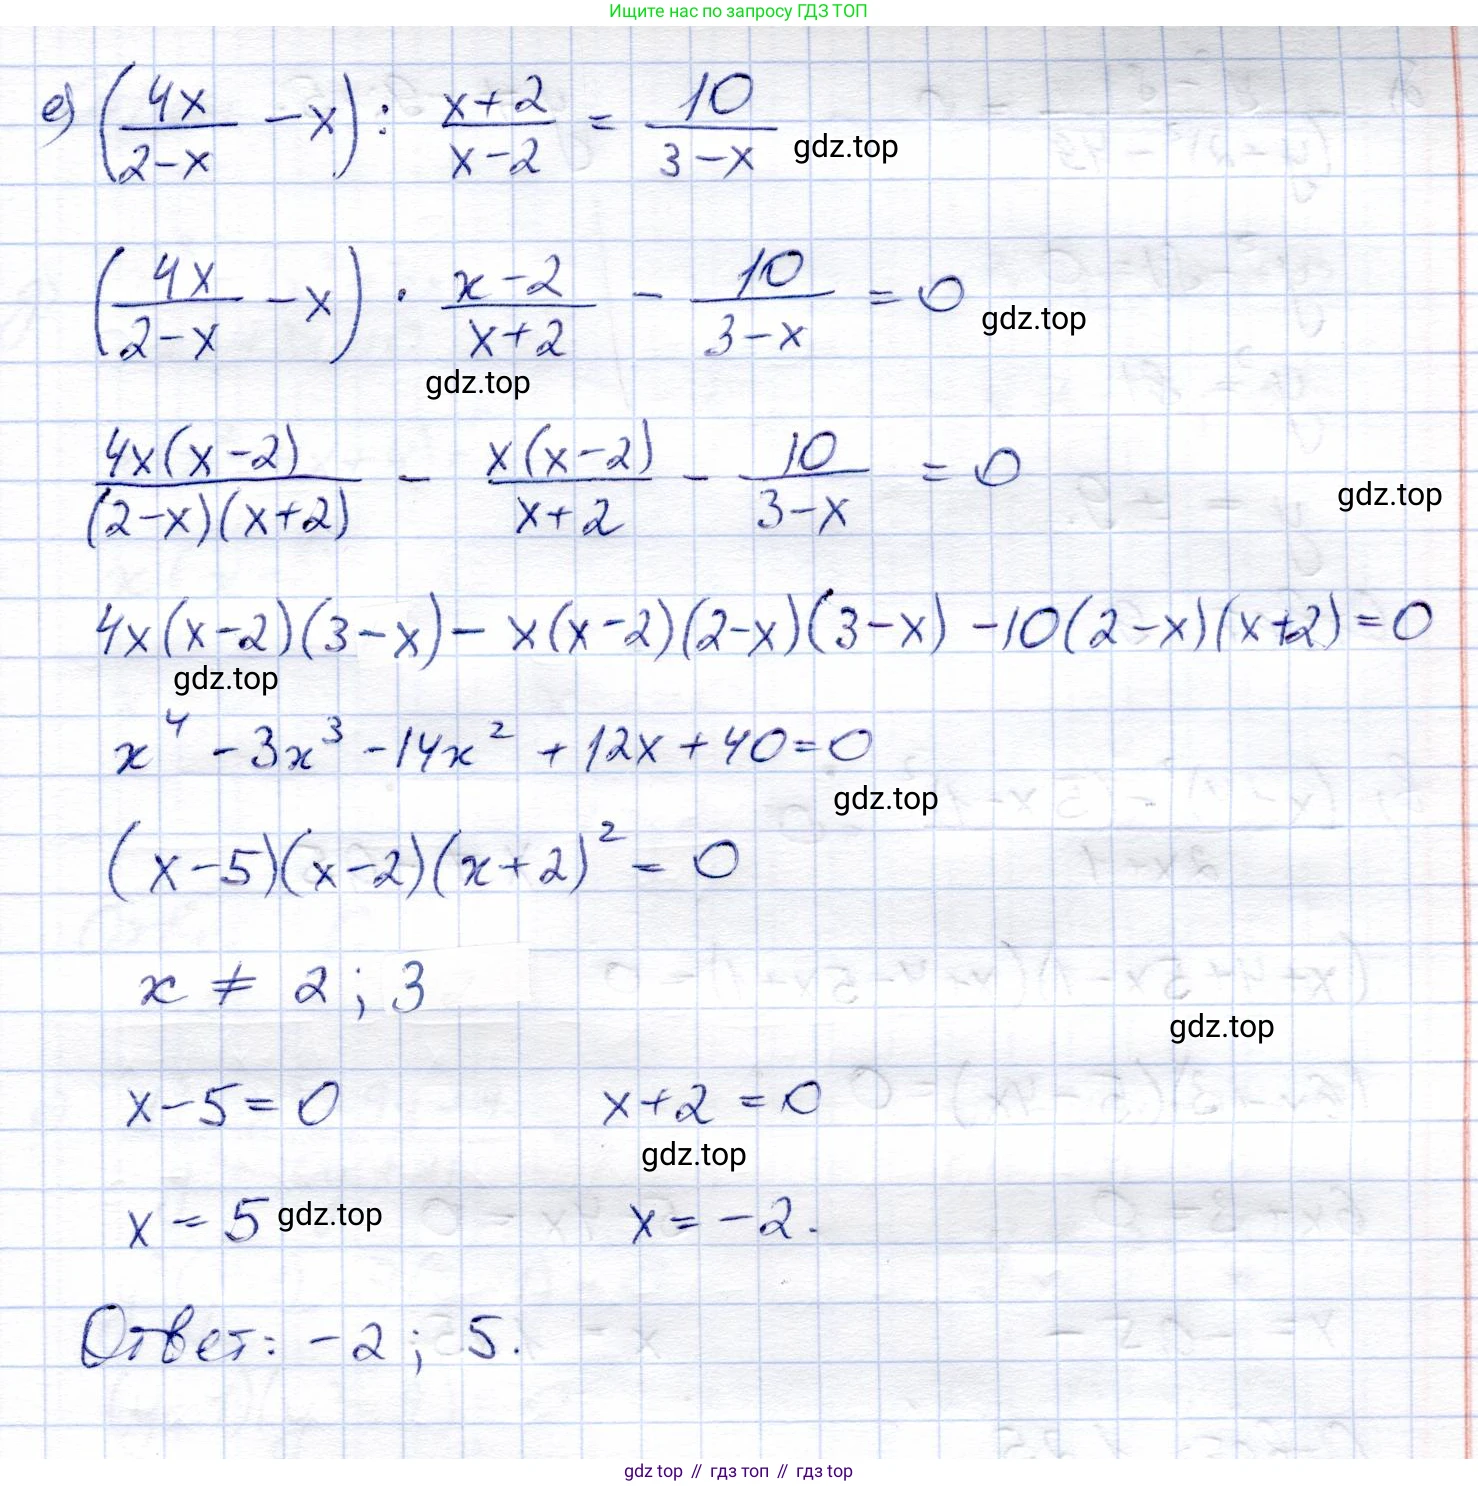 Ищите нас по запросу ГДЗ ТОП
е) (4x/(2-x) - x) : (x+2)/(x-2) = 10/(3-x) gdz.top
(4x/(2-x) - x) · (x-2)/(x+2) - 10/(3-x) = 0 gdz.top
gdz.top
4x(x-2)/((2-x)(x+2)) - x(x-2)/(x+2) - 10/(3-x) = 0 gdz.top
4x(x-2)(3-x) - x(x-2)(2-x)(3-x) - 10(2-x)(x+2) = 0
gdz.top
x⁴ - 3x³ - 14x² + 12x + 40 = 0
gdz.top
(x-5)(x-2)(x+2)² = 0
x ≠ 2; 3
gdz.top
x-5=0 x+2=0
gdz.top
x = 5 gdz.top x = -2.
Ответ: -2; 5.
gdz top // гдз топ // гдз top